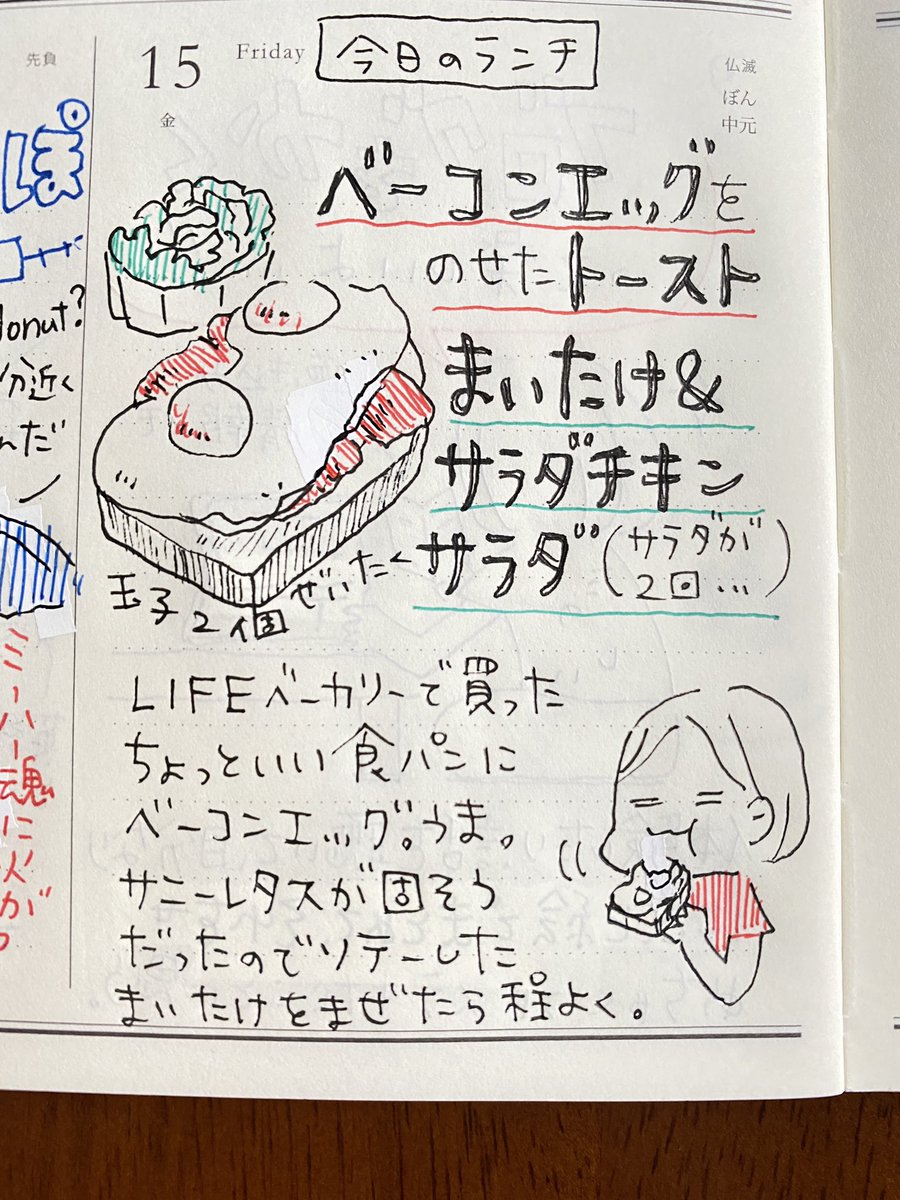 先負
15
Friday
今日のランチ
仏滅
ぼん
中元
金
ベーコンエッグを
のせたトースト
まいたけ&
サラダチキン
サラダ(サラダが
2回…)
玉子2個ぜいたく
LIFEベーカリーで買った
ちょっといい食パンに
ベーコンエッグ。うま。
サニーレタスが固そう
だったのでソテーした
まいたけをまぜたら程よく。
ぽ
donut?
分近く
んだ
ミーハー魂
に火
が